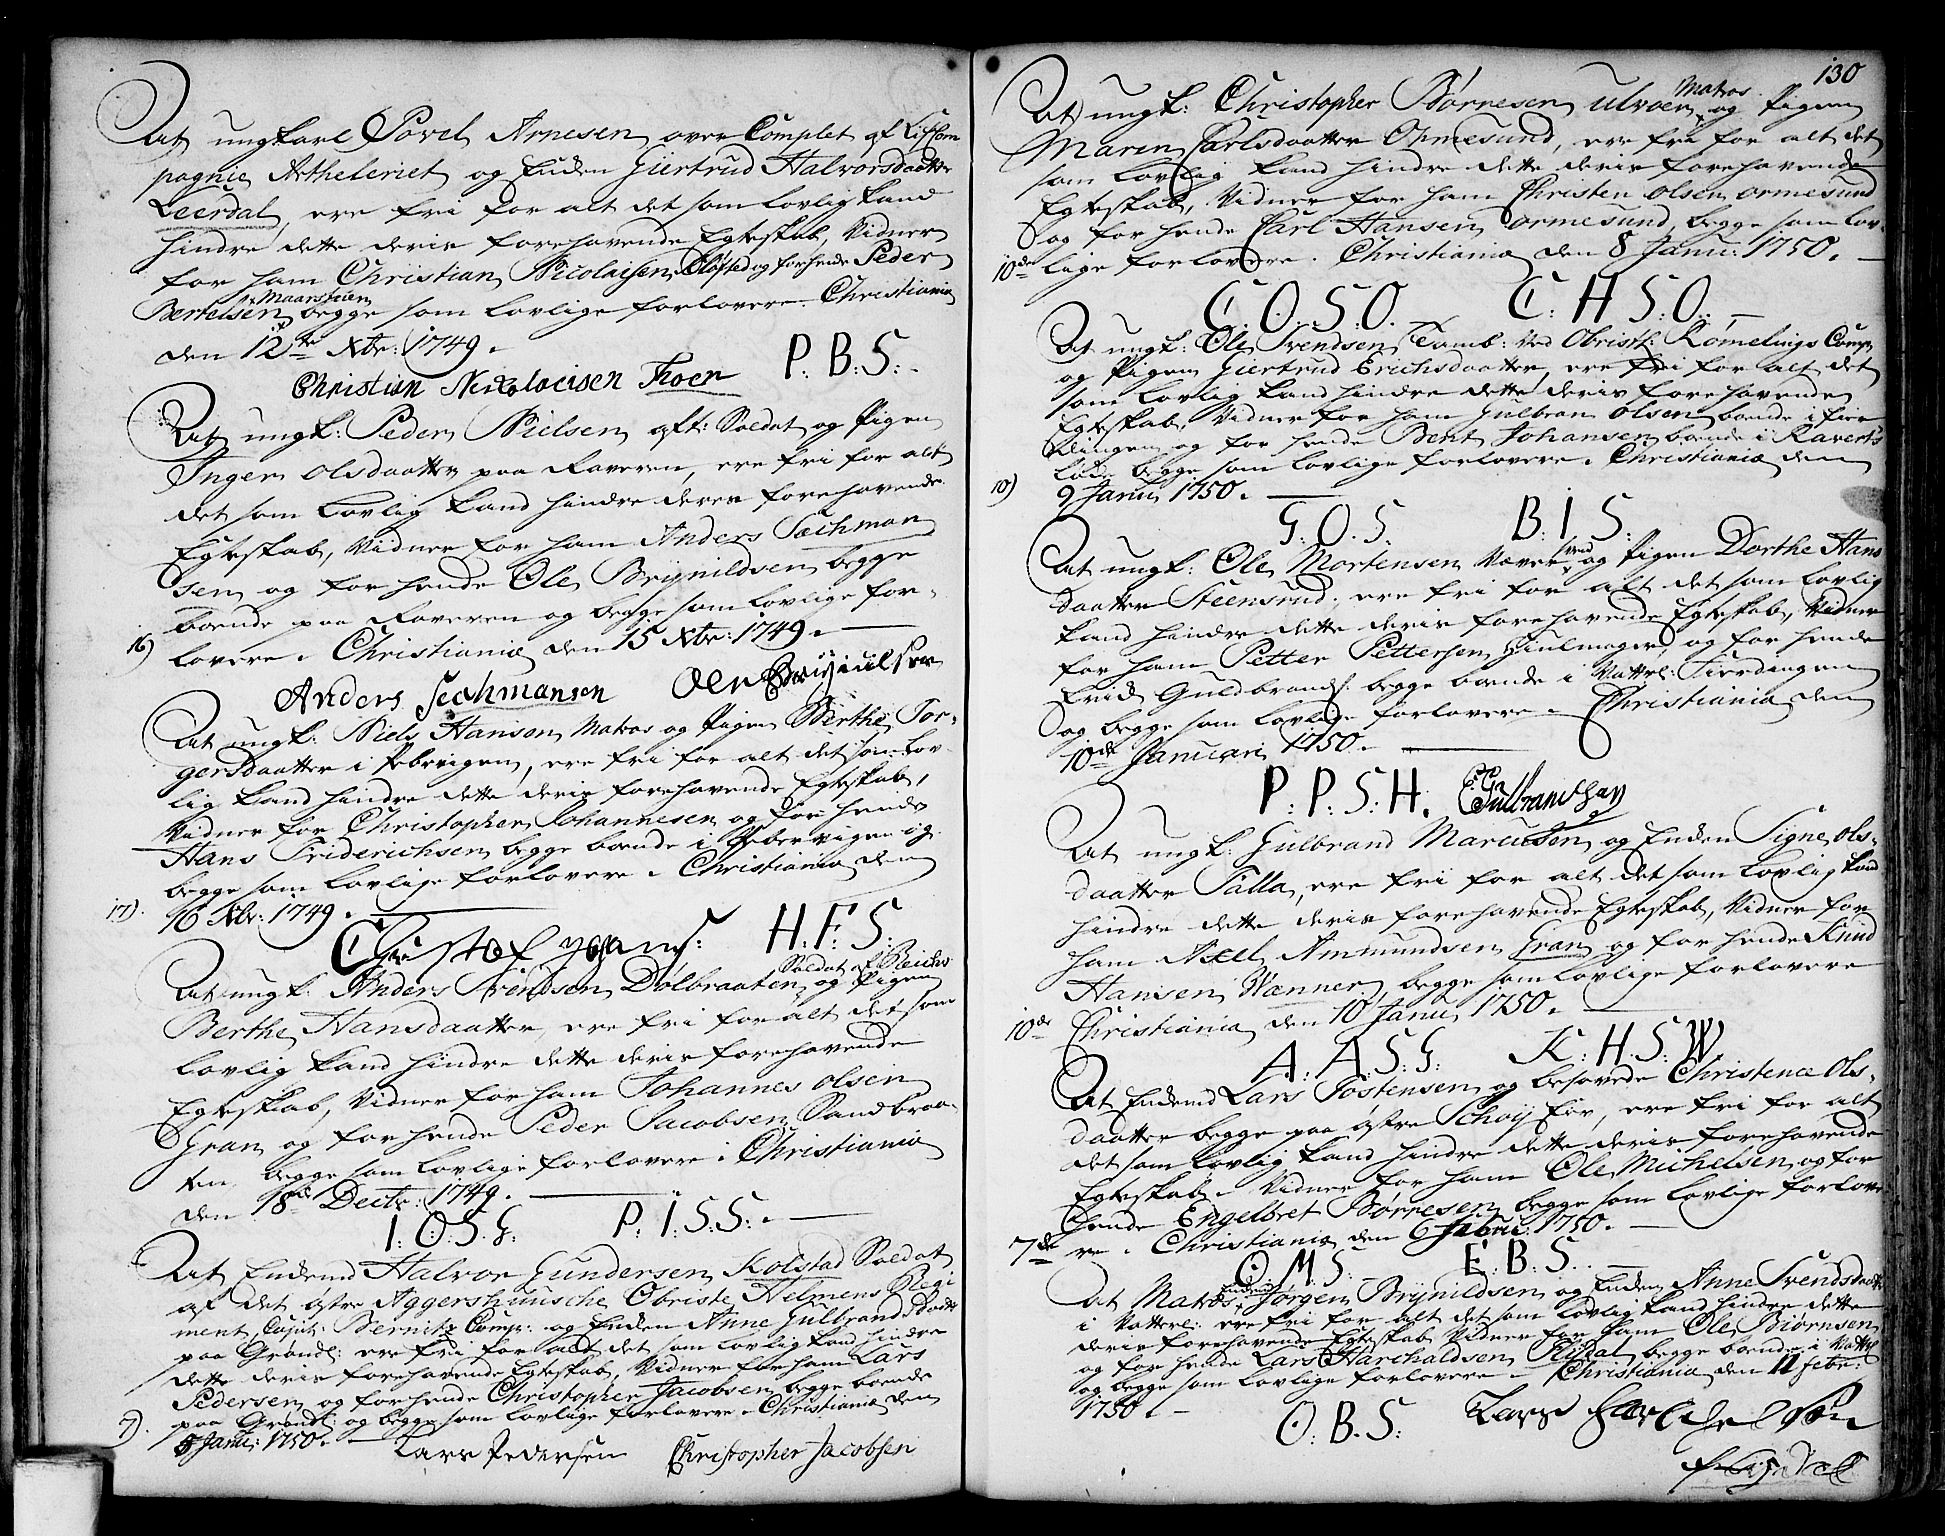 At ungkarl Povel Arnesen over Complet af Liff Com
pagnie Artheleriet og Enken Giertrud Halvorsdaatter
Leerdal, ere fri for alt det som lovlig kand
hindre dette deris forehavende Egteskab, Vidner
for ham Christian Nicolaisen og for hende Peder
Maarstuen
Bertelsen begge som lovlige forlovere. Christiania
den 12te Xbr: 1749.
P. B. S.
Christian Nickolaeisen
At ungk: Peder Nielsen aft: Soldat og Pigen
Inger Olsdaatter paa Raveren, ere fri for alt
det som lovlig kand hindre deres forehavende
Egteskab, Vidner for ham Anders Sachman
sen og for hende Ole Brynildsen begge
boende paa Raveren og begge som lovlige for-
16) lovere. Christiania den 15 Xbr: 1749.
Anders Sechmansen
At ungk: Niels Hansen Matros og Pigen Berthe Tor-
gersdaatter i Pebervigen, ere fri for alt det som lov
lig kand hindre dette deris forehavende Egteskab,
Vidner for Christopher Johannesen og for hende
Hans Friderichsen begge boende i Pebervigen og
begge som lovlige forlovere. Christiania den
17). 16 Xbr: 1749.
H. F. S.
Soldat af Reichs
At ungk: Anders Svendsen Dølbraaten og Pigen
Berthe Hansdaatter, ere fri for alt det som
lovlig kand hindre dette deris forehavende
Egteskab, Vidner for ham Johannes Olsen
Gran og for hende Peder Jacobsen Sandbraa-
ten begge som lovlige forlovere. Christiania
den 18de Decbr: 1749.
I. O. S. G. P. I. S. S.
At Enkemd Halvor Gundersen Kolstad Soldat
af det østre Aggershuusche Obriste Helmens Regi
ment, Capit: Bernitz Comp: og Enken Anne Gulbrandsdaatter
paa Grønl: ere fri for alt det som lovlig kand hindre
dette deris forehavende Egteskab, Vidner for ham Lars
Pedersen og for hende Christopher Jacobsen begge boende
paa Grønl: og begge som lovlige forlovere. Christiania den
7). 5 Janu: 1750.
Lars Pedersen Christopher Jacobsen
130
Matros
At ungk: Christopher Børresen Ulvøen og Pigen
Maren Carlsdaatter Ormesund, ere fri for alt det
som lovlig kand hindre dette deris forehavende
Egteskab, Vidner for ham Christen Olsen Ormesund
og for hende Carl Hansen Ormesund, begge som lov-
10de lige forlovere. Christiania den 8 Janu: 1750.
C. O. S. O. C. H. S. O.
At ungk: Ole Svendsen Tamb: ved Obristl: Rømelings Comp
og Pigen Giertrud Erichsdaatter, ere fri for alt det
som lovlig kand hindre dette deris forehavende
Egteskab, Vidner for ham Gulbran Olsen boende i fier
dingen og for hende Bent Johansen boende i Raverts
løkke begge som lovlige forlovere. Christiania den
10) 9 Janu: 1750.
G. O. S. B. I. S.
At ungk: Ole Mortensen Væver og Pigen Dorthe Hans
daatter Steensrud, ere fri for alt det som lovlig
kand hindre dette deris forehavende Egteskab, Vidner
for ham Petter Pettersen Hiulmager, og for hende
Erich Guldbrands: begge boende i Vatterl: Fierdingen
og begge som lovlige forlovere. Christiania den
10de Januari 1750.
P. P. S. H.
At ungk: Gulbrand Marcusen og Enken Signe Ols-
daatter Palla, ere fri for alt det som lovlig kand
hindre dette deris forehavende Egteskab, Vidner for
ham Axel Ammundsen Gran og for hende Knud
Hansen Wænner, begge som lovlige forlovere
10de Christiania den 10 Janu: 1750.
A. A. S. G. K. H. S. W
At Enkemd Lars Tostensen og besovede Christence Ols-
daatter begge paa østre Schøijen, ere fri for alt
det som lovlig kand hindre dette deris forehavende
Egteskab. Vidner for ham Ole Michelsen og for
hende Engelbret Børresen begge som lovlige forlove
7de re. Christiania den 6 Febru: 1750.
O. M. S. E. B. S.
At Matros Jørgen Brynildsen og Enken Anne Svendsdaatter
i Vatterl: ere fri for alt det som lovlig kand hindre dette
deris forehavende Egteskab Vidner for ham Ole Biørnsen
og for hende Lars Harchaldsen begge boende i Vatterl
og begge som lovlige forlovere. Christiania den 11 Febr:
1750.
O. B. S.